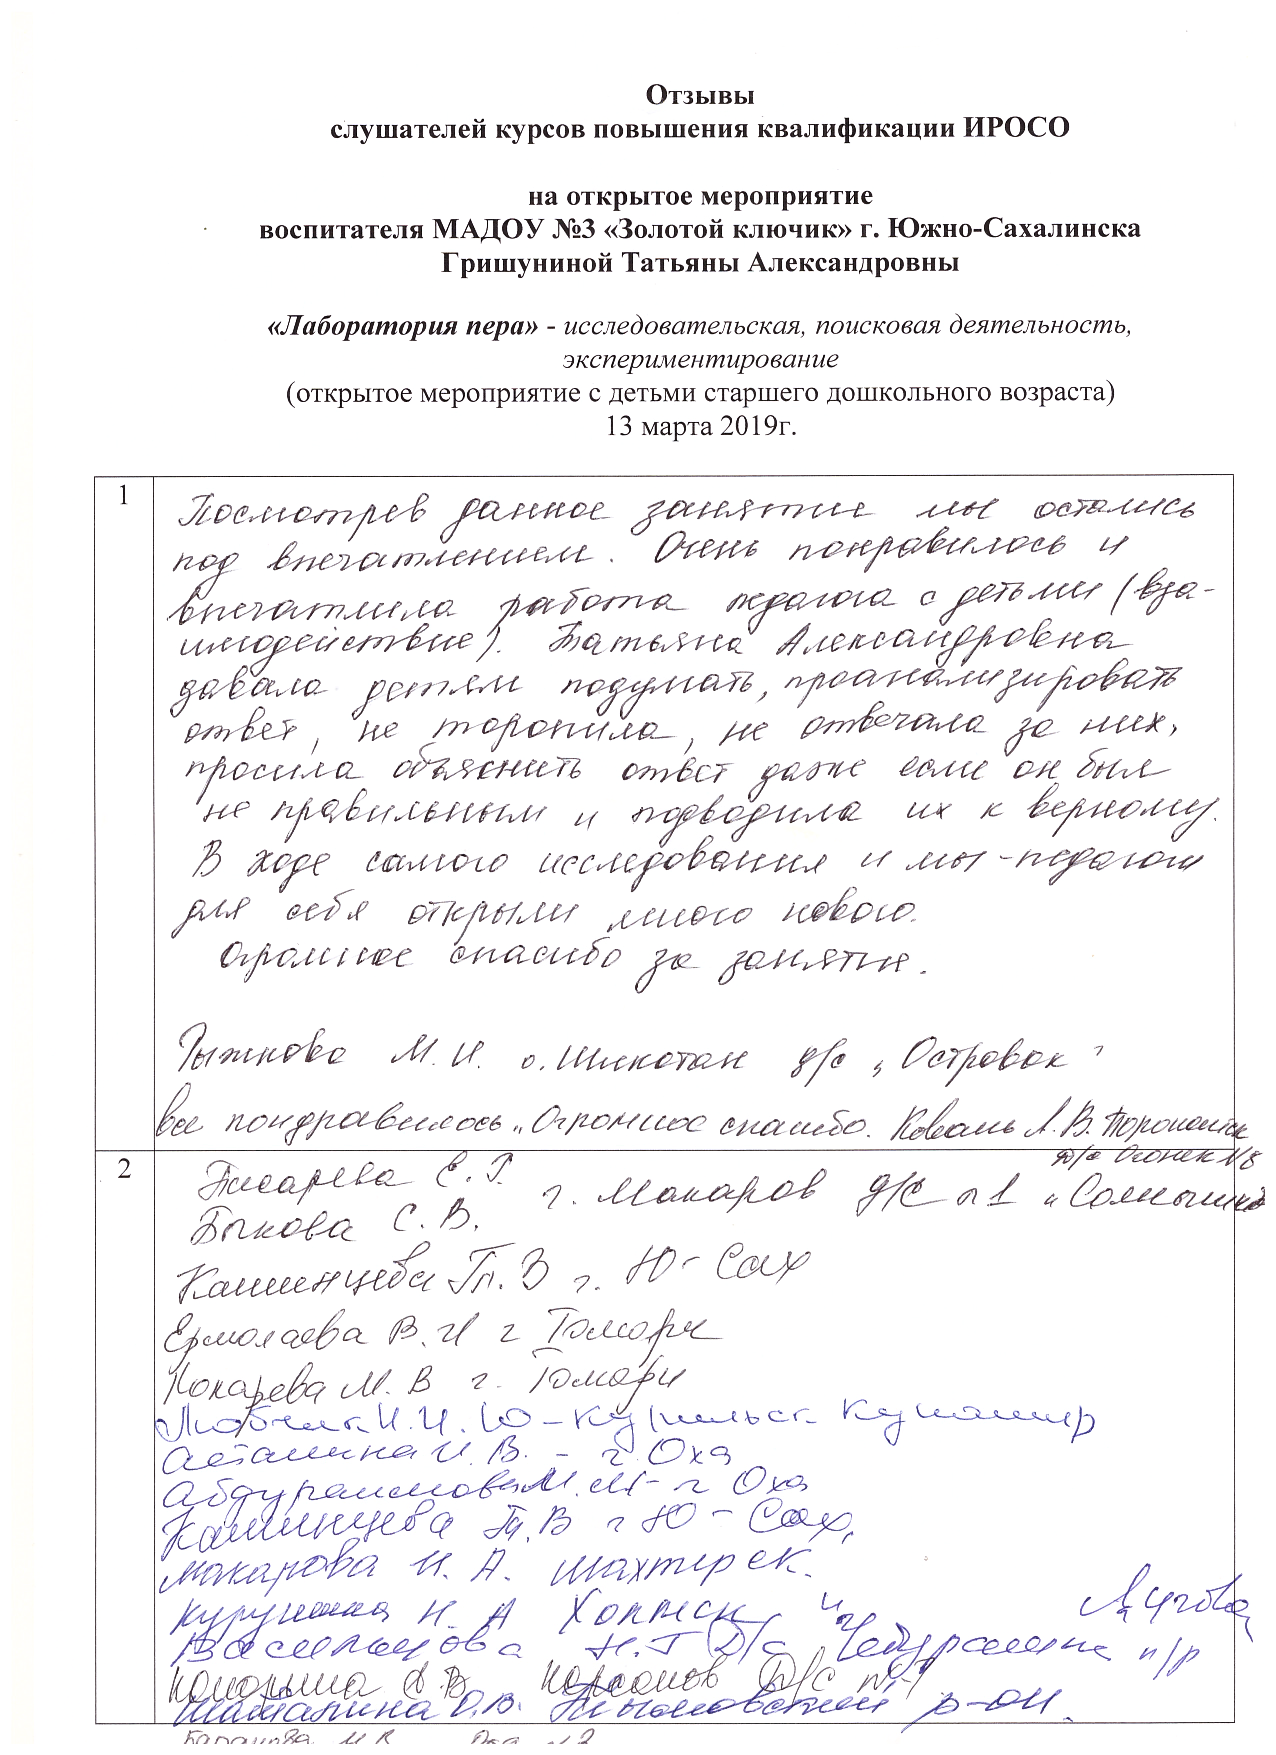 Отзывы
слушателей курсов повышения квалификации ИРОСО
на открытое мероприятие
воспитателя МАДОУ №3 «Золотой ключик» г. Южно-Сахалинска
Гришуниной Татьяны Александровны
«Лаборатория пера» - исследовательская, поисковая деятельность,
экспериментирование
(открытое мероприятие с детьми старшего дошкольного возраста)
13 марта 2019г.
1
Посмотрев данное занятие мы остались
под впечатлением. Очень понравилось и
впечатлила работа педагога с детьми (вза-
имодействие). Татьяна Александровна
давала детям подумать, проанализировать
ответ, не торопила, не отвечала за них,
просила объяснить ответ даже если он был
не правильным и подводила их к верному.
В ходе самого исследования и мы - педагоги
для себя открыли много нового.
Огромное спасибо за занятие.
Рыжкова М.И. о. Шикотан д/с „Островок"
все пондравилось„ Огромное спасибо. Коваль Л.В.
д/с Огонек N8
2
Писарева Е.Г.
г. Макаров д/с №1 „Солнышко
Быкова С.В.
Камынцева Т.В г. Ю-Сах
Ермолаева В.И г Томари
Кокарева М.В г. Томари
И.И. Ю-Курильск Кунашир
Асталина И.В. - г Оха
Абдураимова М.М - г Оха
Камынцева Т.В г Ю-Сах,
Макарова И.А. Шахтерск.
Н.А Холмск
Васильцова Н.Г Д/с „Чебурашка" п/р
Корсаков Д/с
О.В. р-он.